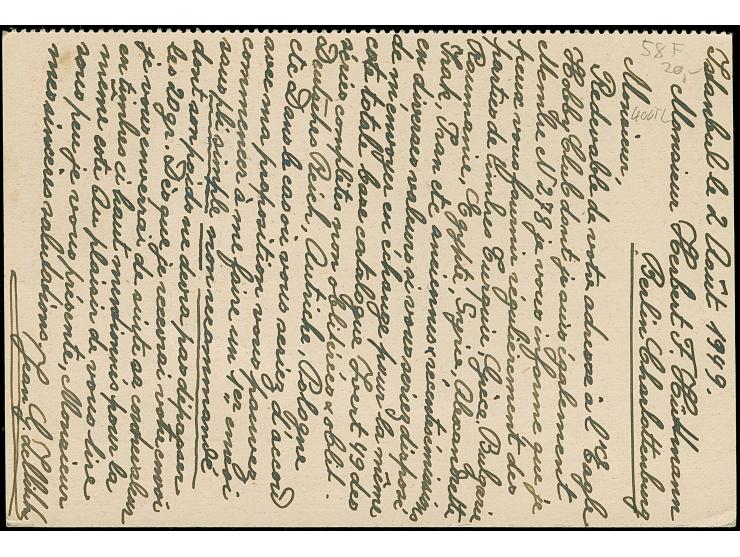 Istanbul le 2 Août 1949.
Monsieur Herbert F. Hüttmann
Berlin Charlottenburg
Monsieur,
Redevable de votre adresse à l'Eagle
Hobby Club dont je suis également
Membre N° 278 je vous informe que je
peux vous fournir régulièrement des
parties de timbres Turquie, Grèce, Bulgarie
Roumanie, Egypte, Syrie, Alexandrette
Irak, Iran etc anciennes & récentes émissions
en diverses valeurs si vous seriez disposé
de m'envoyer en échange pour la même
cote totale base catalogue Yvert 49 des
séries complètes non oblitérées & oblit.
Deutsches Reich, Autriche, Pologne
etc. Dans le cas où vous seriez d'accord
avec ma proposition vous pouvez
commencer à me faire un 1er envoi
sous pli simple non recommandé
dont son poids ne devra pas dépasser
les 20 gr. Dès que je recevrai votre envoi
je vous enverrai de suite sa contrevaleur
en timbres ci haut mentionnés pour la
même cote. Au plaisir de vous lire
sous peu je vous présente, Monsieur
mes sincères salutations.
58 F
20,-